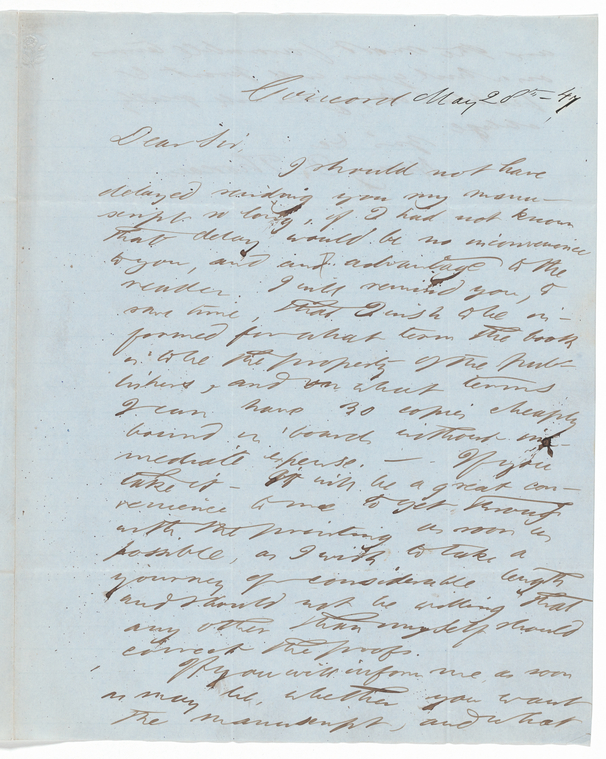 Concord May 28th - 47
Dear Sir,
I should not have
delayed sending you my manu-
script so long, if I had not known
that delay would be no inconvenience
to you, and an advantage to the
reader. I will remind you, to
save time, that I wish to be in-
formed for what term the book
is to be the property of the pub-
lishers, and on what terms
I can have 30 copies cheaply
bound in boards without im-
mediate expense. — If you
take it — It will be a great con-
venience to me to get through
with the printing as soon as
possible, as I wish to take a
journey of considerable length
and should not be willing that
any other than myself should
correct the proofs.
If you will inform me as soon
as may be, whether you want
the manuscript, and what